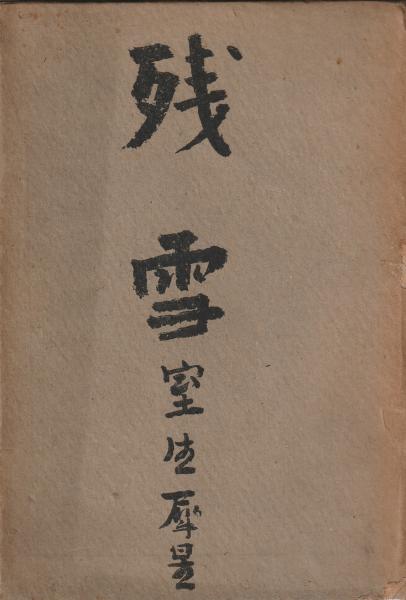 残雪
室生犀星